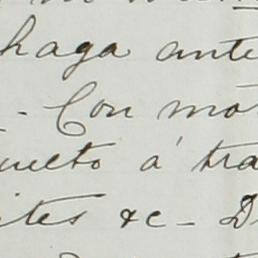 haga ante
- Con mo
uelto á tra
ites &c - D